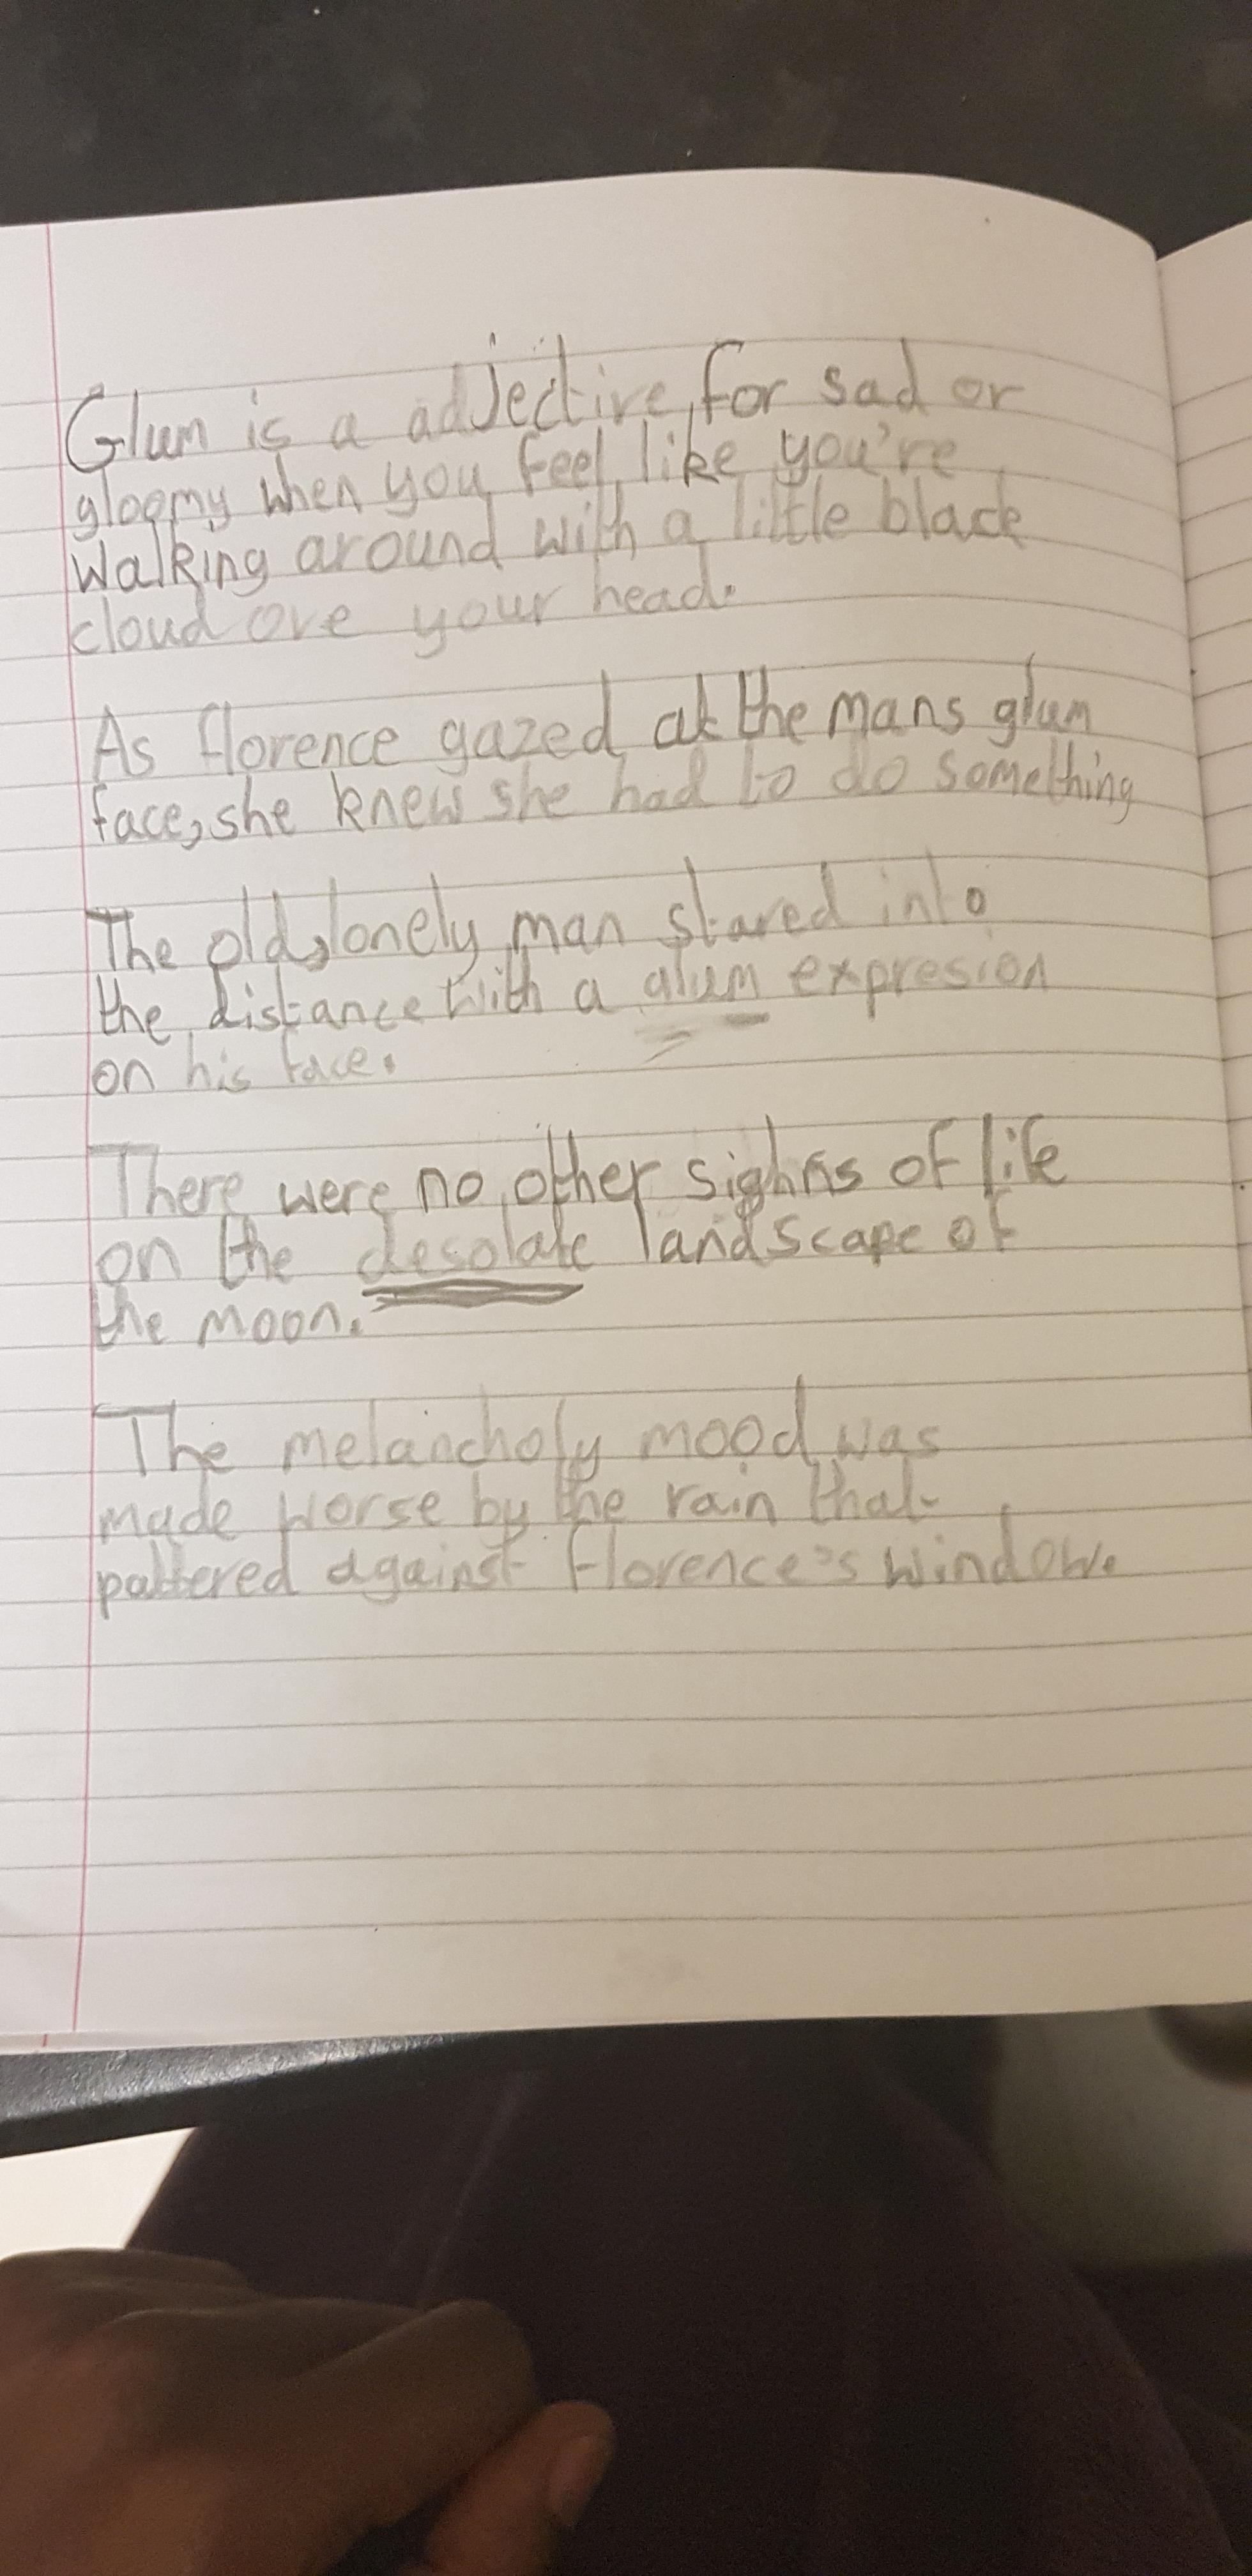 Glum is a adjective, for sad or
gloomy when you feel like you're
walking around with a little black
cloud ove your head.
As florence gazed at the mans glum
face, she knew she had to do something
The old, lonely man stared into
the distance with a glum expresion
on his face.
There were no other sighns of life
on the desolate landscape of
the moon.
The melancholy mood was
made worse by the rain that
pattered against florence's window.